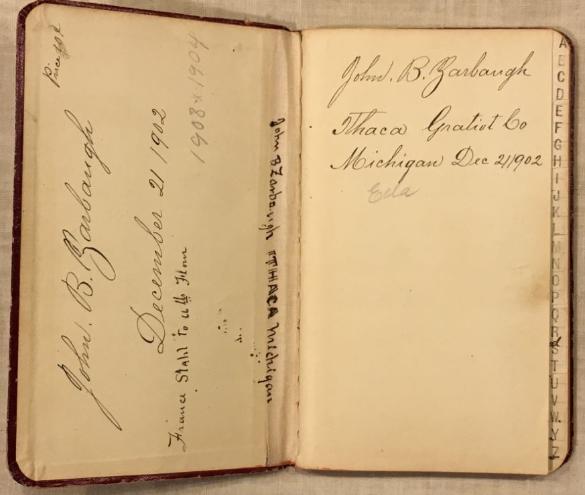 Price 40¢
John. B. Zarbaugh
December 21 1902
1908 & 1904
John B Zarbaugh ITHACA Michigan
John. B. Zarbaugh
Ithaca Gratiot Co
Michigan Dec 21 1902
A
B
C
D
E
F
G
H
I
J
K
L
M
N
O
P
Q
R
S
T
U
V
W
Y
Z